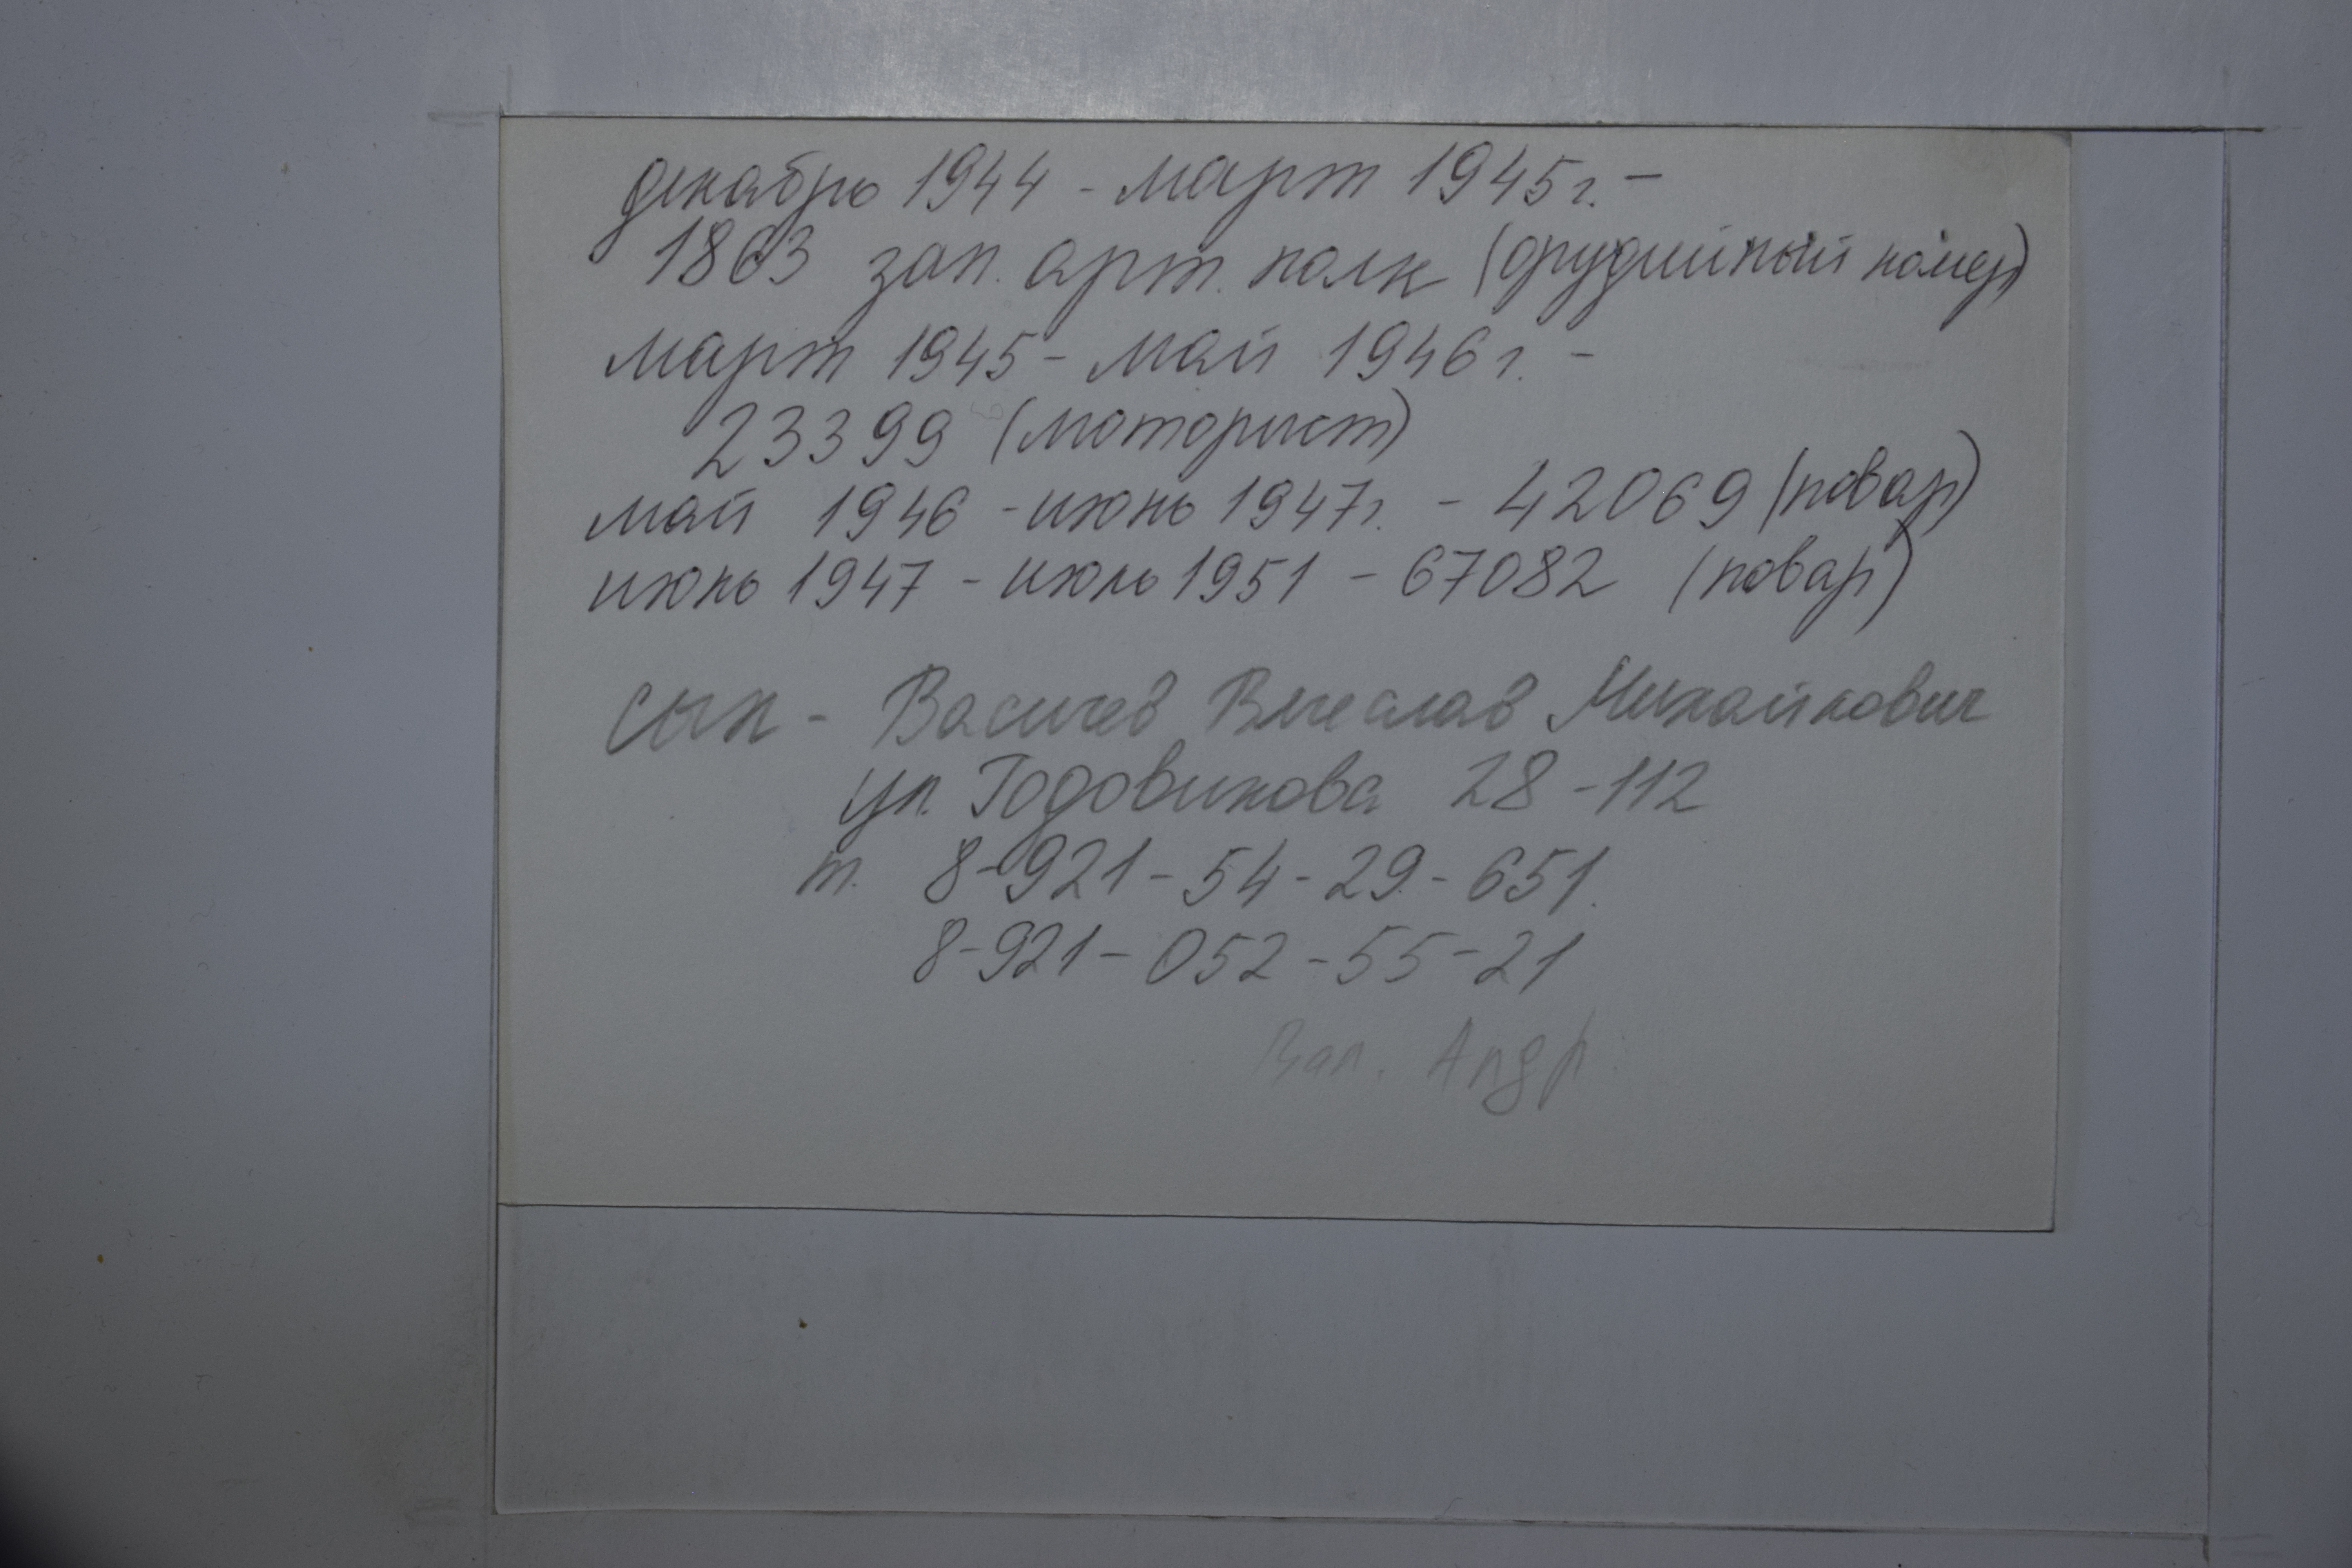 декабрь 1944 - март 1945г. -
1863 зап. арт. полк (орудийный номер)
март 1945 - май 1946г. -
23399 (моторист)
май 1946 - июнь 1947г. - 42069 (повар)
июнь 1947 - июль 1951 - 67082 (повар)
сын - Васичев Вячеслав Михайлович
ул. Годовикова 28-112
т. 8-921-54-29-651.
8-921-052-55-21
Андр.